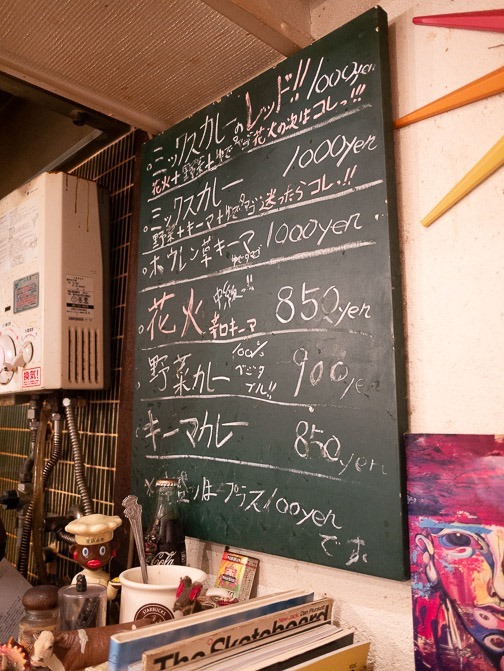 ミックスカレーのレッド!! 1000yen
花火+野菜+ゆでタマゴ 花火の次はコレっ!!
ミックスカレー 1000yen
野菜+キーマ+ゆでタマゴ 迷ったらコレっ!!
ホウレン草キーマ 1000yen
花火 850yen
辛口キーマ
野菜カレー 100% ベジタブル!! 900yen
キーマカレー 850yen
大盛りはプラス100yen
です
換気!
Cola
STARBUCKS
The Skateboard